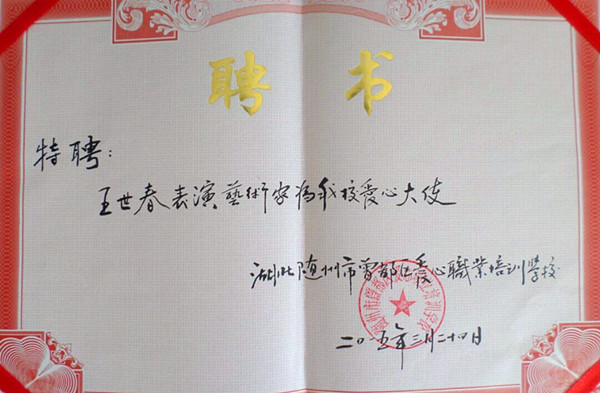 聘书
特聘：
王世春表演藝術家為我校爱心大使
湖北随州市曾都区爱心職業培訓学校
二〇一五年三月二十四日